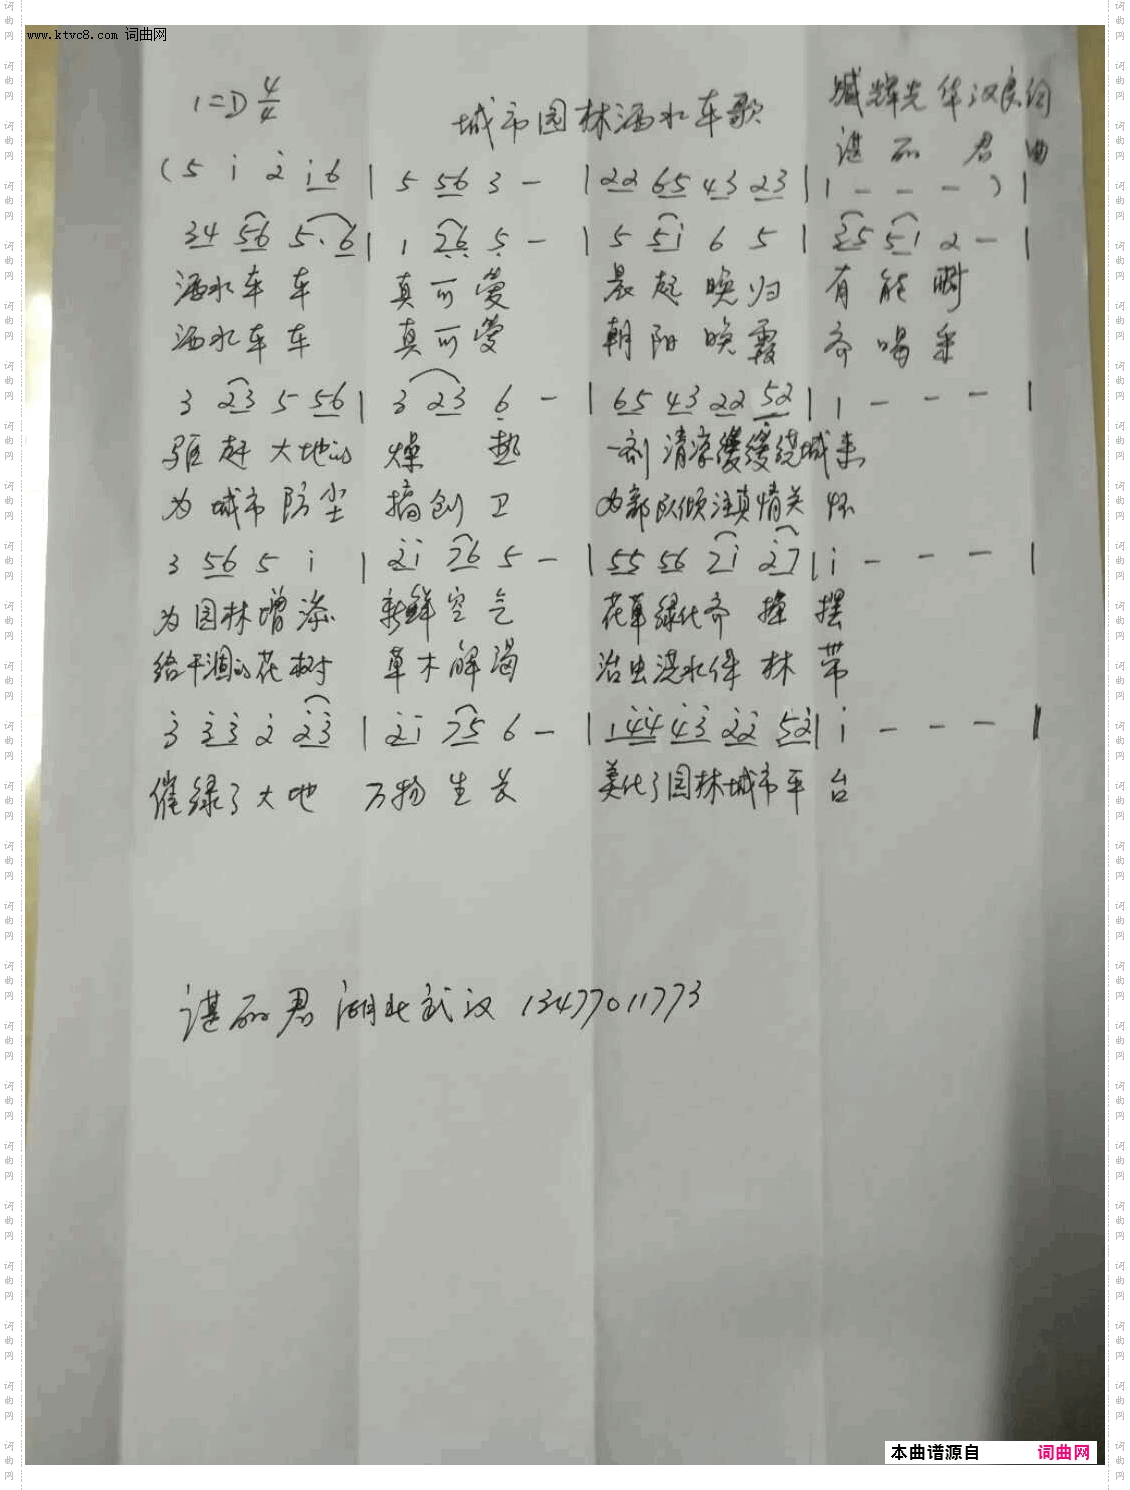 www.ktvc8.com 词曲网
1=D 4/4
城市园林洒水车歌
臧辉光 华汉良词
谌丽君曲
(5 i 2̇ i̇6 | 5 56 3 - | 22 65 43 23 | 1 - - - ) |
34 56 5·6 | 1 26 5 - | 5 5i 6 5 | 35 51 2 - |
洒水车车 真可爱 晨起晚归 有能耐
洒水车车 真可爱 朝阳晚霞 齐喝采
3 23 5 56 | 3 23 6 - | 65 43 22 52 | 1 - - - |
驱赶大地的燥热 一刻清凉缓缓绕城来
为城市防尘搞创卫 为部队倾注真情关怀
3 56 5 i | 2̇i 76 5 - | 55 56 7i 2̇7 | i - - - |
为园林增添新鲜空气 花草绿化齐摇摆
给干涸的花树草木解渴 治虫浇水保林带
3̇ 3̇3̇ 2̇ 2̇3̇ | 2̇i 75 6 - | i4̇4̇ 4̇3̇ 2̇2̇ 52̇ | i - - - |
催绿了大地 万物生长 美化了园林城市平台
谌丽君 湖北武汉 13477011773
本曲谱源自 词曲网